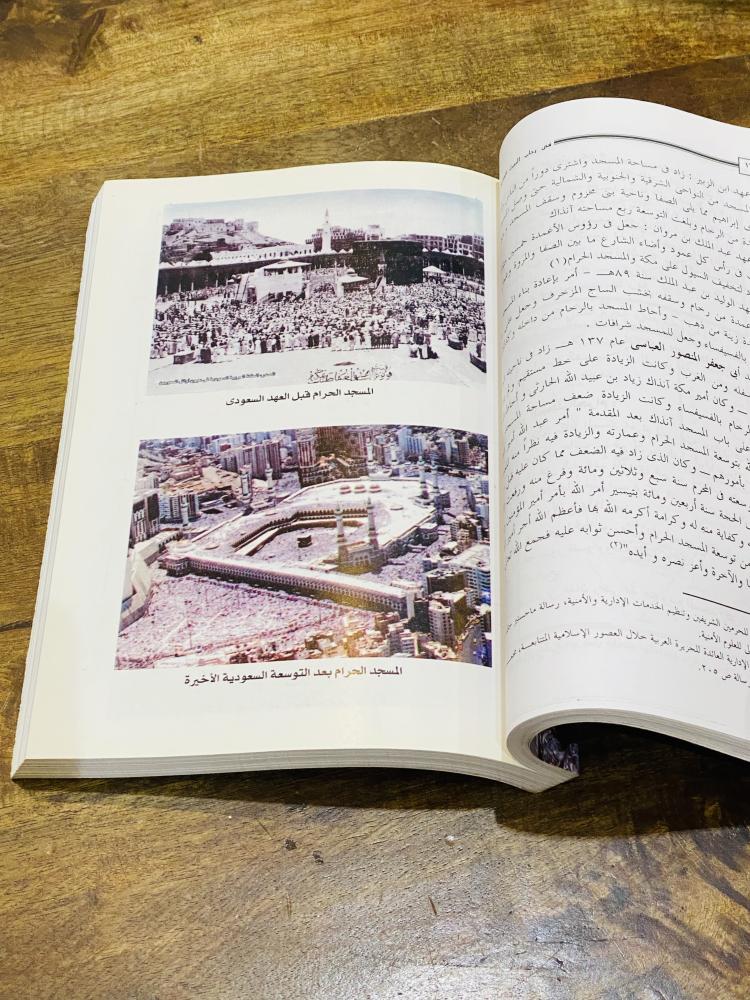 المسجد الحرام قبل العهد السعودى
المسجد الحرام بعد التوسعة السعودية الأخيرة
فى رحاب
عهد ابن الزبير : زاد فى مساحة المسجد واشترى دوراً من
المسجد من النواحي الشرقية والجنوبية والشمالية حتى
إبراهيم مما يلى الصفا وناحية بنى مخزوم وسقف المسجد
من الرخام وبلغت التوسعة ربع مساحته آنذاك
عبد الملك بن مروان : جعل فى رؤوس الأعمدة خمسين
فى رأس كل عمود وأضاء الشارع ما بين الصفا والمروة
لتخفيف السيول على مكة والمسجد الحرام(١)
الوليد بن عبد الملك سنة ٨٩هـ – أمر بإعادة بناء
أعمدة من رخام وسقفه بخشب الساج المزخرف وجعل
زينة من ذهب – وأحاط المسجد بالرخام من داخله
بالفسيفساء وجعل للمسجد شرافات .
أبي جعفر المنصور العباسى عام ١٣٧ هـ – زاد فى
ومن الغرب وكانت الزيادة على خط مستقيم
– وكان أمير مكة آنذاك زياد بن عبيد الله الحارثى
الرخام بالفسيفساء وكانت الزيادة ضعف مساحة
على باب المسجد آنذاك بعد المقدمة " أمر عبد الله
بتوسعة المسجد الحرام وعمارته والزيادة فيه نظراً
بأمورهم – وكان الذى زاد فيه الضعف مما كان عليه
فى المحرم سنة سبع وثلاثين ومائة وفرغ منه
الحجة سنة أربعين ومائة بتيسير أمر الله بأمر أمير
وكفاية منه له وكرامة أكرمه الله بها فأعظم الله أجر
من توسعة المسجد الحرام وأحسن ثوابه عليه فجمع الله
والآخرة وأعز نصره و أيده"(٢)
للحرمين الشريفين وتنظيم الخدمات الإدارية والأمنية، رسالة ماجستير
للعلوم الأمنية.
الإدارية العائدة للجزيرة العربية خلال العصور الإسلامية المتتابعة،
رسالة ص ٢٠٥.